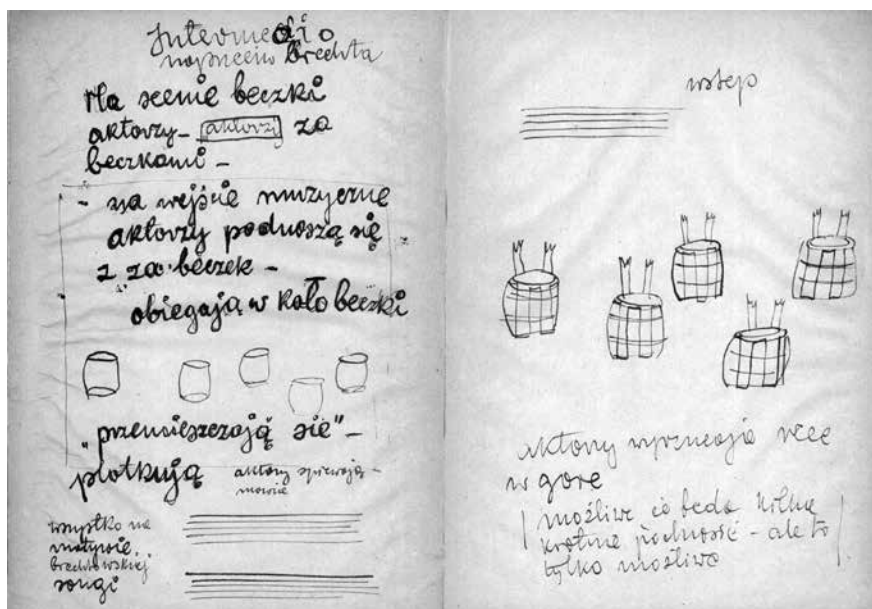 Intermedio
napisein Brechta
Na scenie beczki
aktorzy - aktorzy za
beczkami -
- na wejście muzyczne
aktorzy podnoszą się
z za beczek -
obiegają w koło beczki
"przemieszczają się" -
plotkują aktorzy śpiewają -
mowie
wszystko na
motywie
brechtowskiej
songi
wstęp
aktorzy wyrzucają ręce
w górę
możliwe co będą kilka
krotnie podnosić - ale to
tylko możliwe